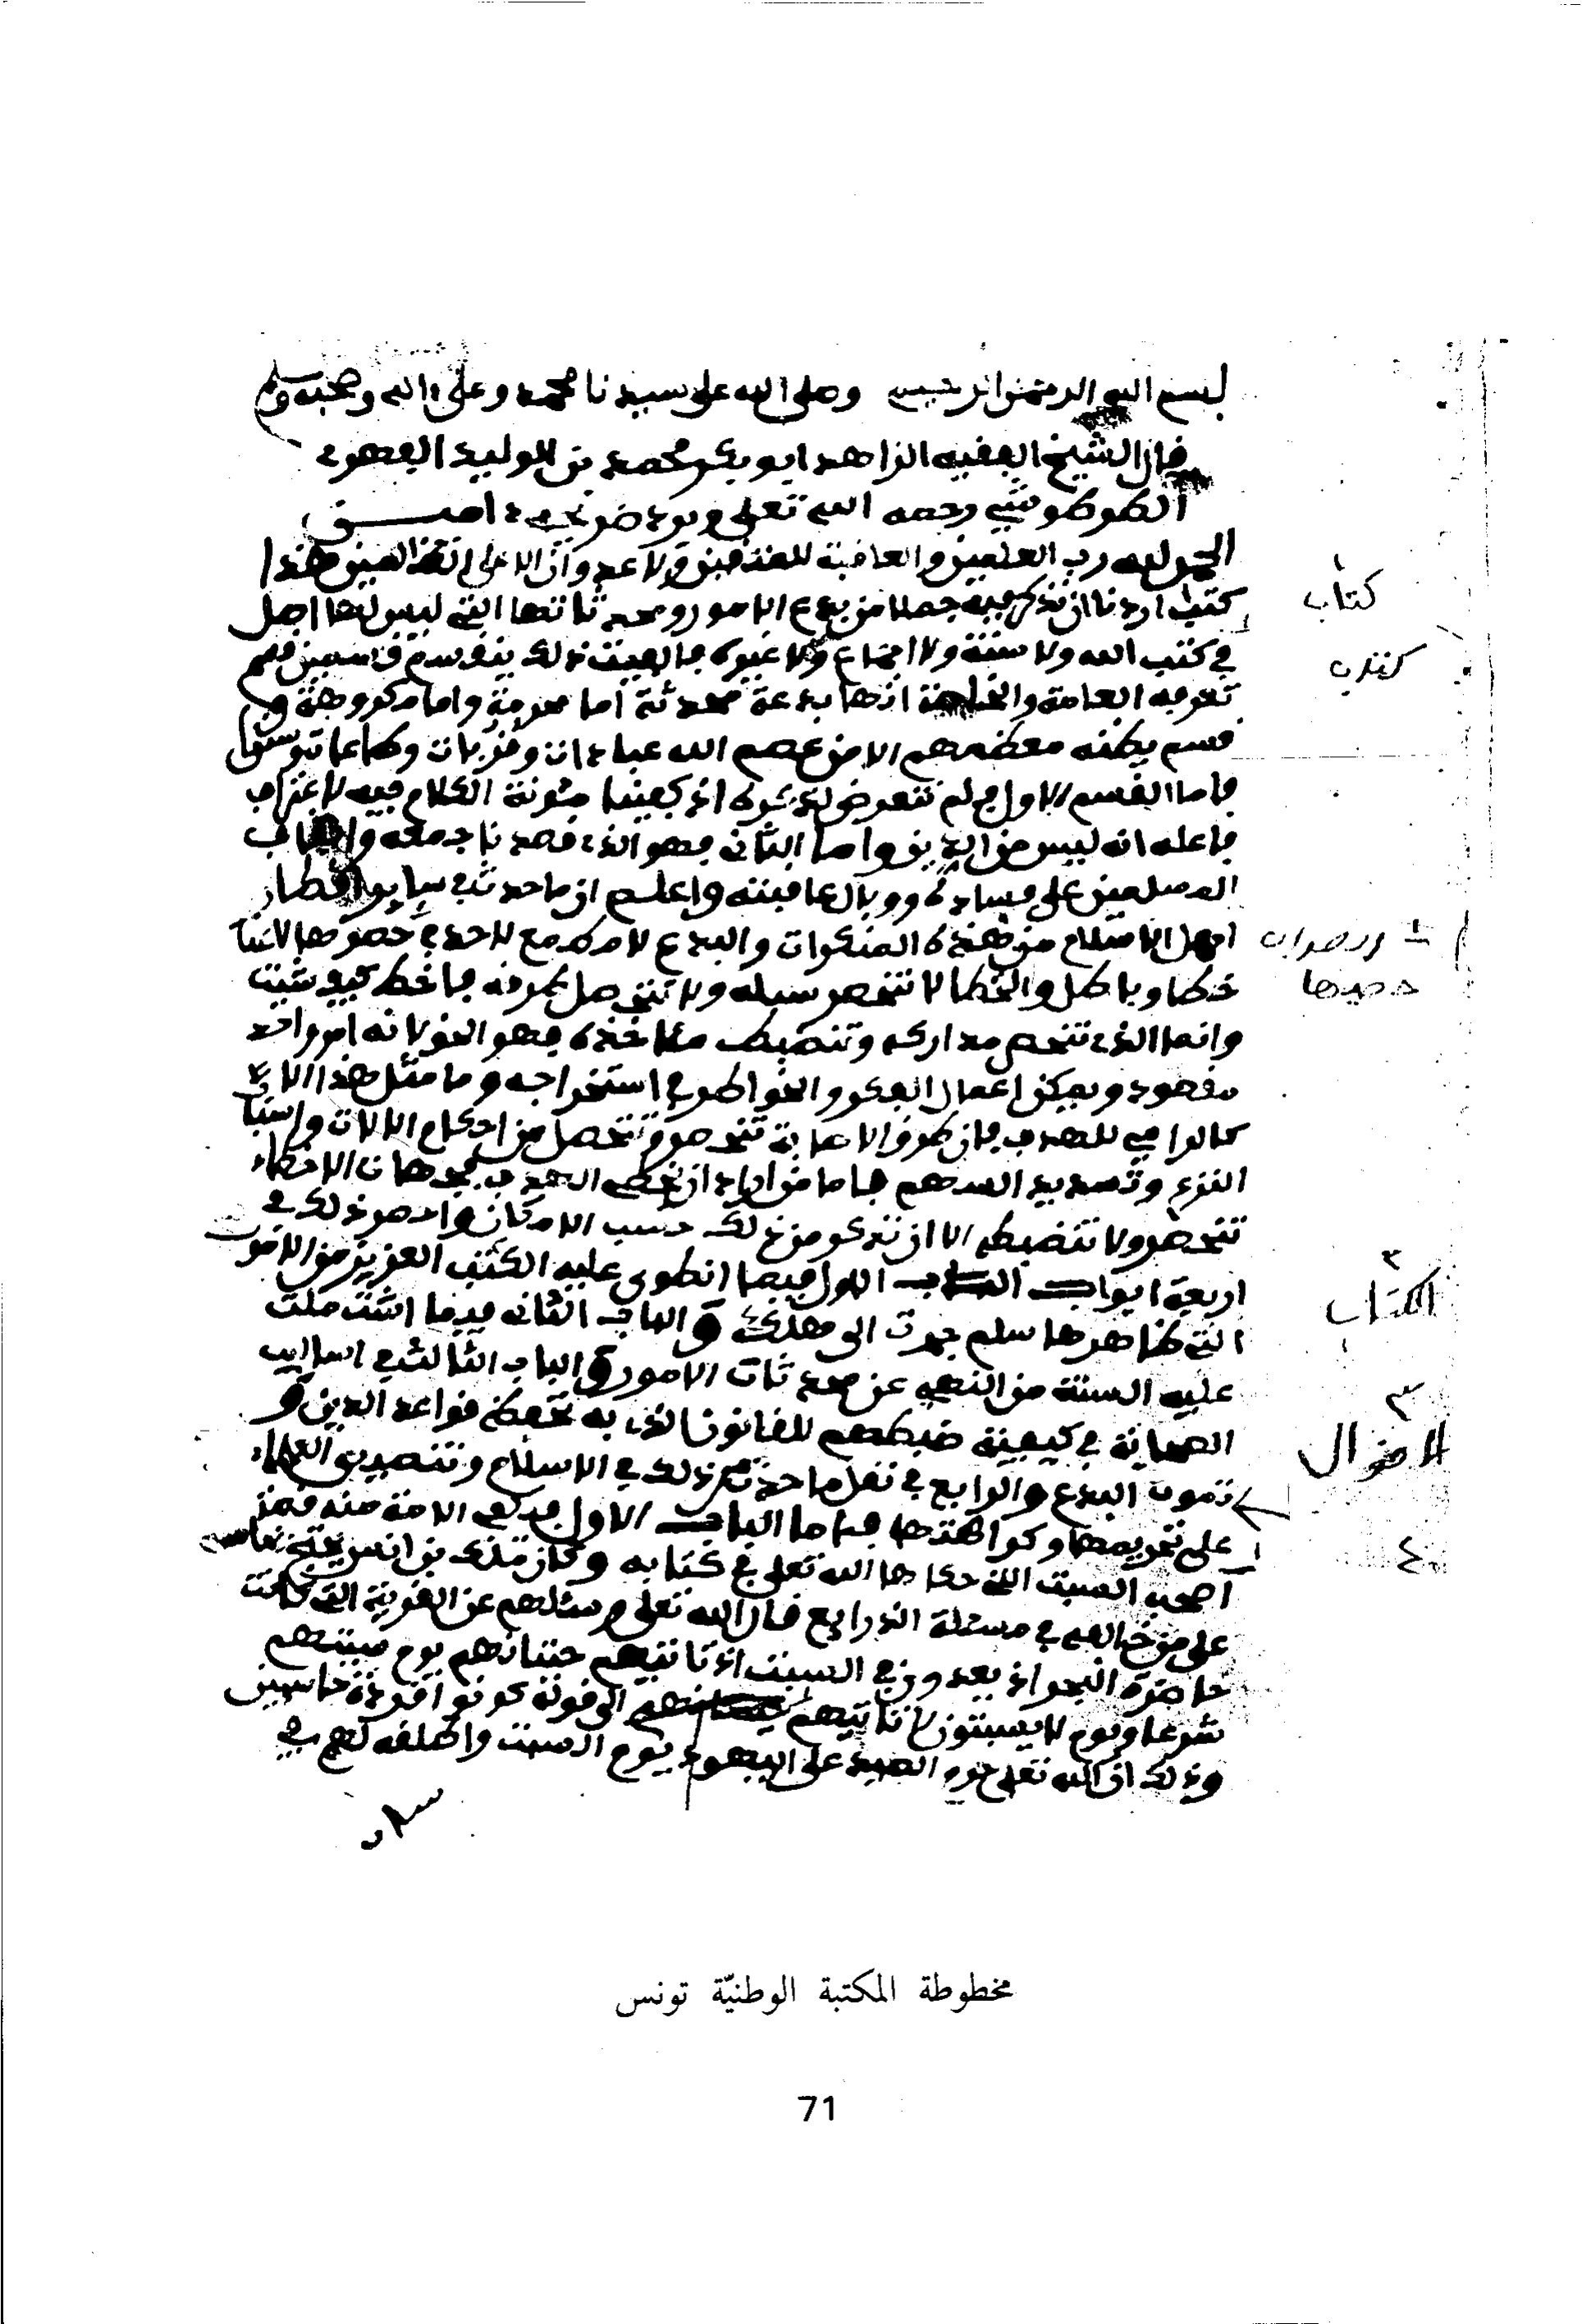 بسم الله الرحمن الرحيم وصلى الله على سيدنا محمد وعلى ءاله وصحبه وسلم
قال الشيخ الفقيه الزاهد ابو بكر محمد بن الوليد الفهري
الطرطوشي رحمه الله تعلى وبرد ضريحه امين
الحمد لله رب العلمين والعاقبة للمتقين ولا عدوان الا على الظالمين هذا
كتب اردنا ان نذكر فيه جملا من بدع الامور ومحدثاتها التي ليس لها اصل
في كتب الله ولا سنة ولا اجماع ولا غيره فالفيت ذلك ينقسم قسمين قسم
تعرفه العامة والخاصة انها بدعة محدثة اما محرمة واما مكروهة و
قسم يظنه معظمهم الا من عصم الله عبادات وقربات وطاعات وسننا
فاما القسم الاول فلم نتعرض لذكره اذ كفينا مئونة الكلام فيه لاعتراف
فاعله انه ليس من الدين واما الثاني فهو الذي قصدنا جمعه وايقاف
المسلمين على فساده ووبال عاقبته واعلم ان ما حدث في ساير اقطار
اهل الاسلام من هذه المنكرات والبدع لا مطمع لاحد في حصرها لانها
خطا وباطل والخطا لا تنحصر سبله ولا تتحصل طرقه فاخط كيف شيت
وانما الذي تنحصر مداركه وتنضبط مئاخذه فهو الحق لانه امر واحد
مقصود ويمكن اعمال الفكر والخواطر في استخراجه وما مثل هذا الا
كالرامي للهدف فان طرق الاصابة تنحصر وتتحصل من احكام الالات واسباب
النزع وتسديد السهم فاما من اراد ان يخطي الهدف فجهات الاخطاء لا
تنحصر ولا تنضبط الا ان نذكر من ذلك حسب الامكان واحصر ذلك في
اربعة ابواب الباب الاول فيما انطوى عليه الكتب العزيز من الامور
التي ظاهرها سلم جرت الى هلك والباب الثاني فيما اشتملت
عليه السنة من النهي عن محدثات الامور والباب الثالث في اساليب
الصحابة في كيفية ضبطهم للقانون الذي به تحفظ قواعد الدين و
تموت البدع والرابع في نقل ما حدث من ذلك في الاسلام وتنصيص العلماء
على تحريمها وكراهتها فاما الباب الاول
اصحب السبت التي حكاها الله تعلى في كتابه وكان ملك بن انس يحتج بها
على من خالفه في مسئلة الذرايع قال الله تعلى وسئلهم عن القرية التي كانت
حاضرة البحر اذ يعدون في السبت اذ تاتيهم حيتانهم يوم سبتهم
شرعا ويوم لا يسبتون لا تاتيهم الى قوله كونوا قردة خاسين
وذلك ان الله تعلى حرم الصيد على اليهود يوم السبت واطلقه لهم في
ساير
كتاب
كتاب
حصرها
الكتاب
الاقوال
مخطوطة المكتبة الوطنيّة تونس
71